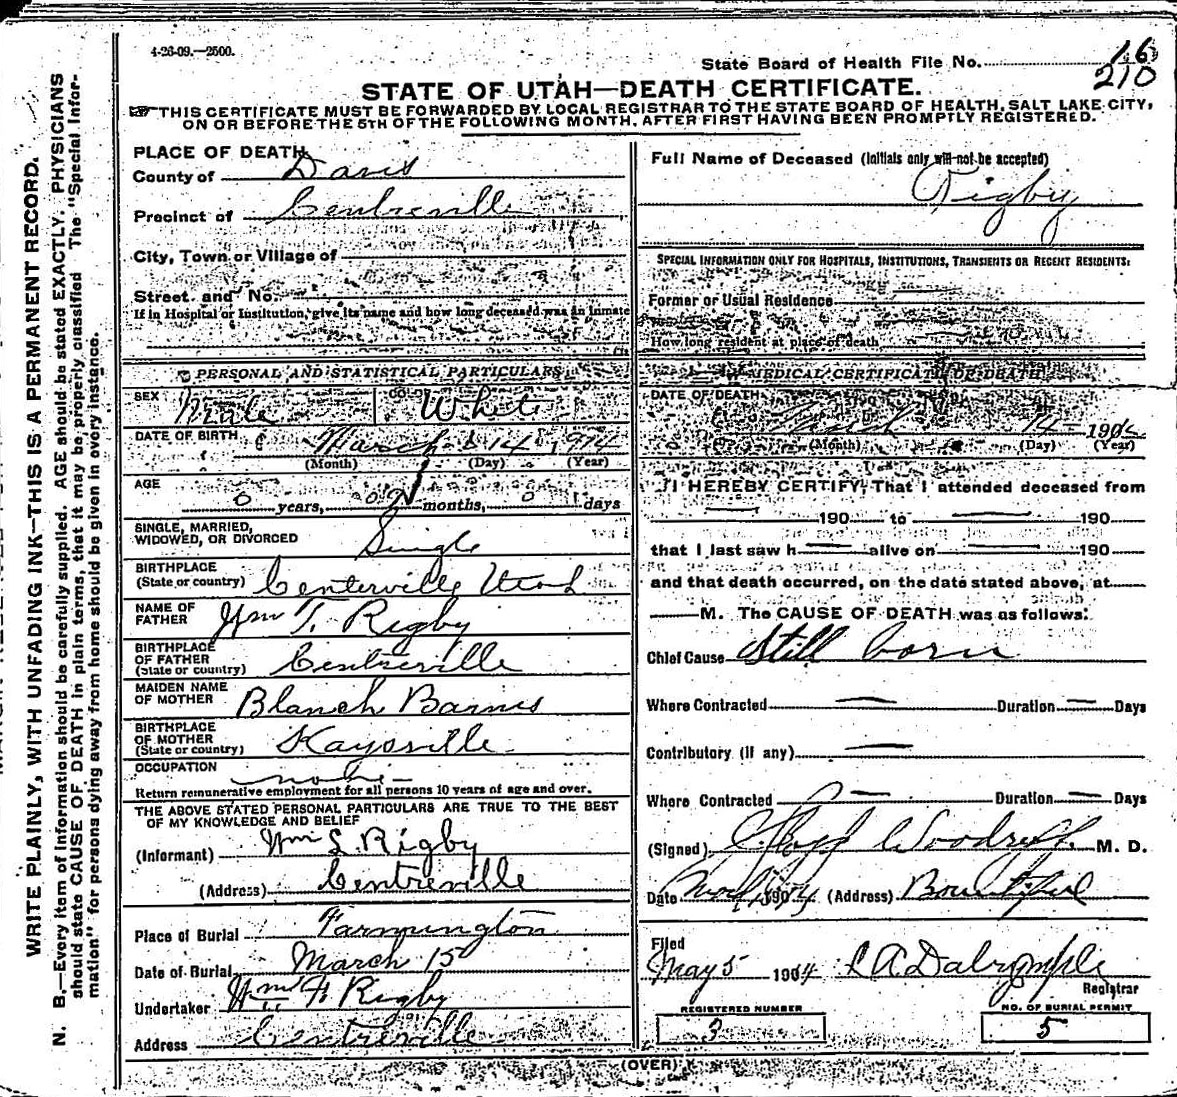 4-26-09.—2500.
State Board of Health File No. 16
210
STATE OF UTAH—DEATH CERTIFICATE.
THIS CERTIFICATE MUST BE FORWARDED BY LOCAL REGISTRAR TO THE STATE BOARD OF HEALTH, SALT LAKE CITY,
ON OR BEFORE THE 5TH OF THE FOLLOWING MONTH, AFTER FIRST HAVING BEEN PROMPTLY REGISTERED.
WRITE PLAINLY, WITH UNFADING INK—THIS IS A PERMANENT RECORD.
N. B.—Every item of information should be carefully supplied. AGE should be stated EXACTLY. PHYSICIANS
should state CAUSE OF DEATH in plain terms, that it may be properly classified. The "Special Infor-
mation" for persons dying away from home should be given in every instance.
PLACE OF DEATH
County of Davis
Precinct of Centreville
City, Town or Village of
Street and No.
If in Hospital or Institution, give its name and how long deceased was an inmate
PERSONAL AND STATISTICAL PARTICULARS
SEX Male White
DATE OF BIRTH March 14
(Month) (Day) (Year)
AGE
0 years, months, 0 days
SINGLE, MARRIED,
WIDOWED, OR DIVORCED Single
BIRTHPLACE
(State or country) Centerville Utah
NAME OF
FATHER Wm T. Rigby
BIRTHPLACE
OF FATHER
(State or country) Centreville
MAIDEN NAME
OF MOTHER Blanch Barnes
BIRTHPLACE
OF MOTHER
(State or country) Kaysville
OCCUPATION none
Return remunerative employment for all persons 10 years of age and over.
THE ABOVE STATED PERSONAL PARTICULARS ARE TRUE TO THE BEST
OF MY KNOWLEDGE AND BELIEF
(Informant) Wm S. Rigby
(Address) Centreville
Place of Burial Farmington
Date of Burial March 15
Undertaker Wm F Rigby
Address Centreville
Full Name of Deceased (Initials only will not be accepted)
Rigby
SPECIAL INFORMATION ONLY FOR HOSPITALS, INSTITUTIONS, TRANSIENTS OR RECENT RESIDENTS:
Former or Usual Residence
How long resident at place of death
MEDICAL CERTIFICATE OF DEATH
DATE OF DEATH
March 14 1904
(Month) (Day) (Year)
I HEREBY CERTIFY, That I attended deceased from
— 190 to — 190
that I last saw h— alive on — 190
and that death occurred, on the date stated above, at
— M. The CAUSE OF DEATH was as follows:
Chief Cause Still born
Where Contracted — Duration — Days
Contributory (if any) —
Where Contracted — Duration — Days
(Signed) Woodruff. M. D.
Date 1904 (Address) Bountiful
Filed
May 5 1904 L A Dalrymple
Registrar
REGISTERED NUMBER
3
NO. OF BURIAL PERMIT
5
(OVER)